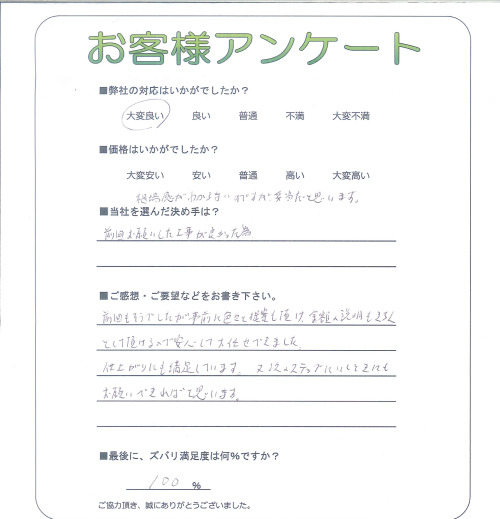 お客様アンケート
■弊社の対応はいかがでしたか？
大変良い 良い 普通 不満 大変不満
■価格はいかがでしたか？
大変安い 安い 普通 高い 大変高い
相場感がわからないですが、妥当だと思います。
■当社を選んだ決め手は？
前回お願いした工事が良かった為
■ご感想・ご要望などをお書き下さい。
前回もそうでしたが事前に色々と提案も頂け、金額の説明も
として頂けるので安心してお任せできました。
仕上がりにも満足しています。又次のステップにいくときにも
お願いできればと思います。
■最後に、ズバリ満足度は何%ですか？
100 %
ご協力頂き、誠にありがとうございました。